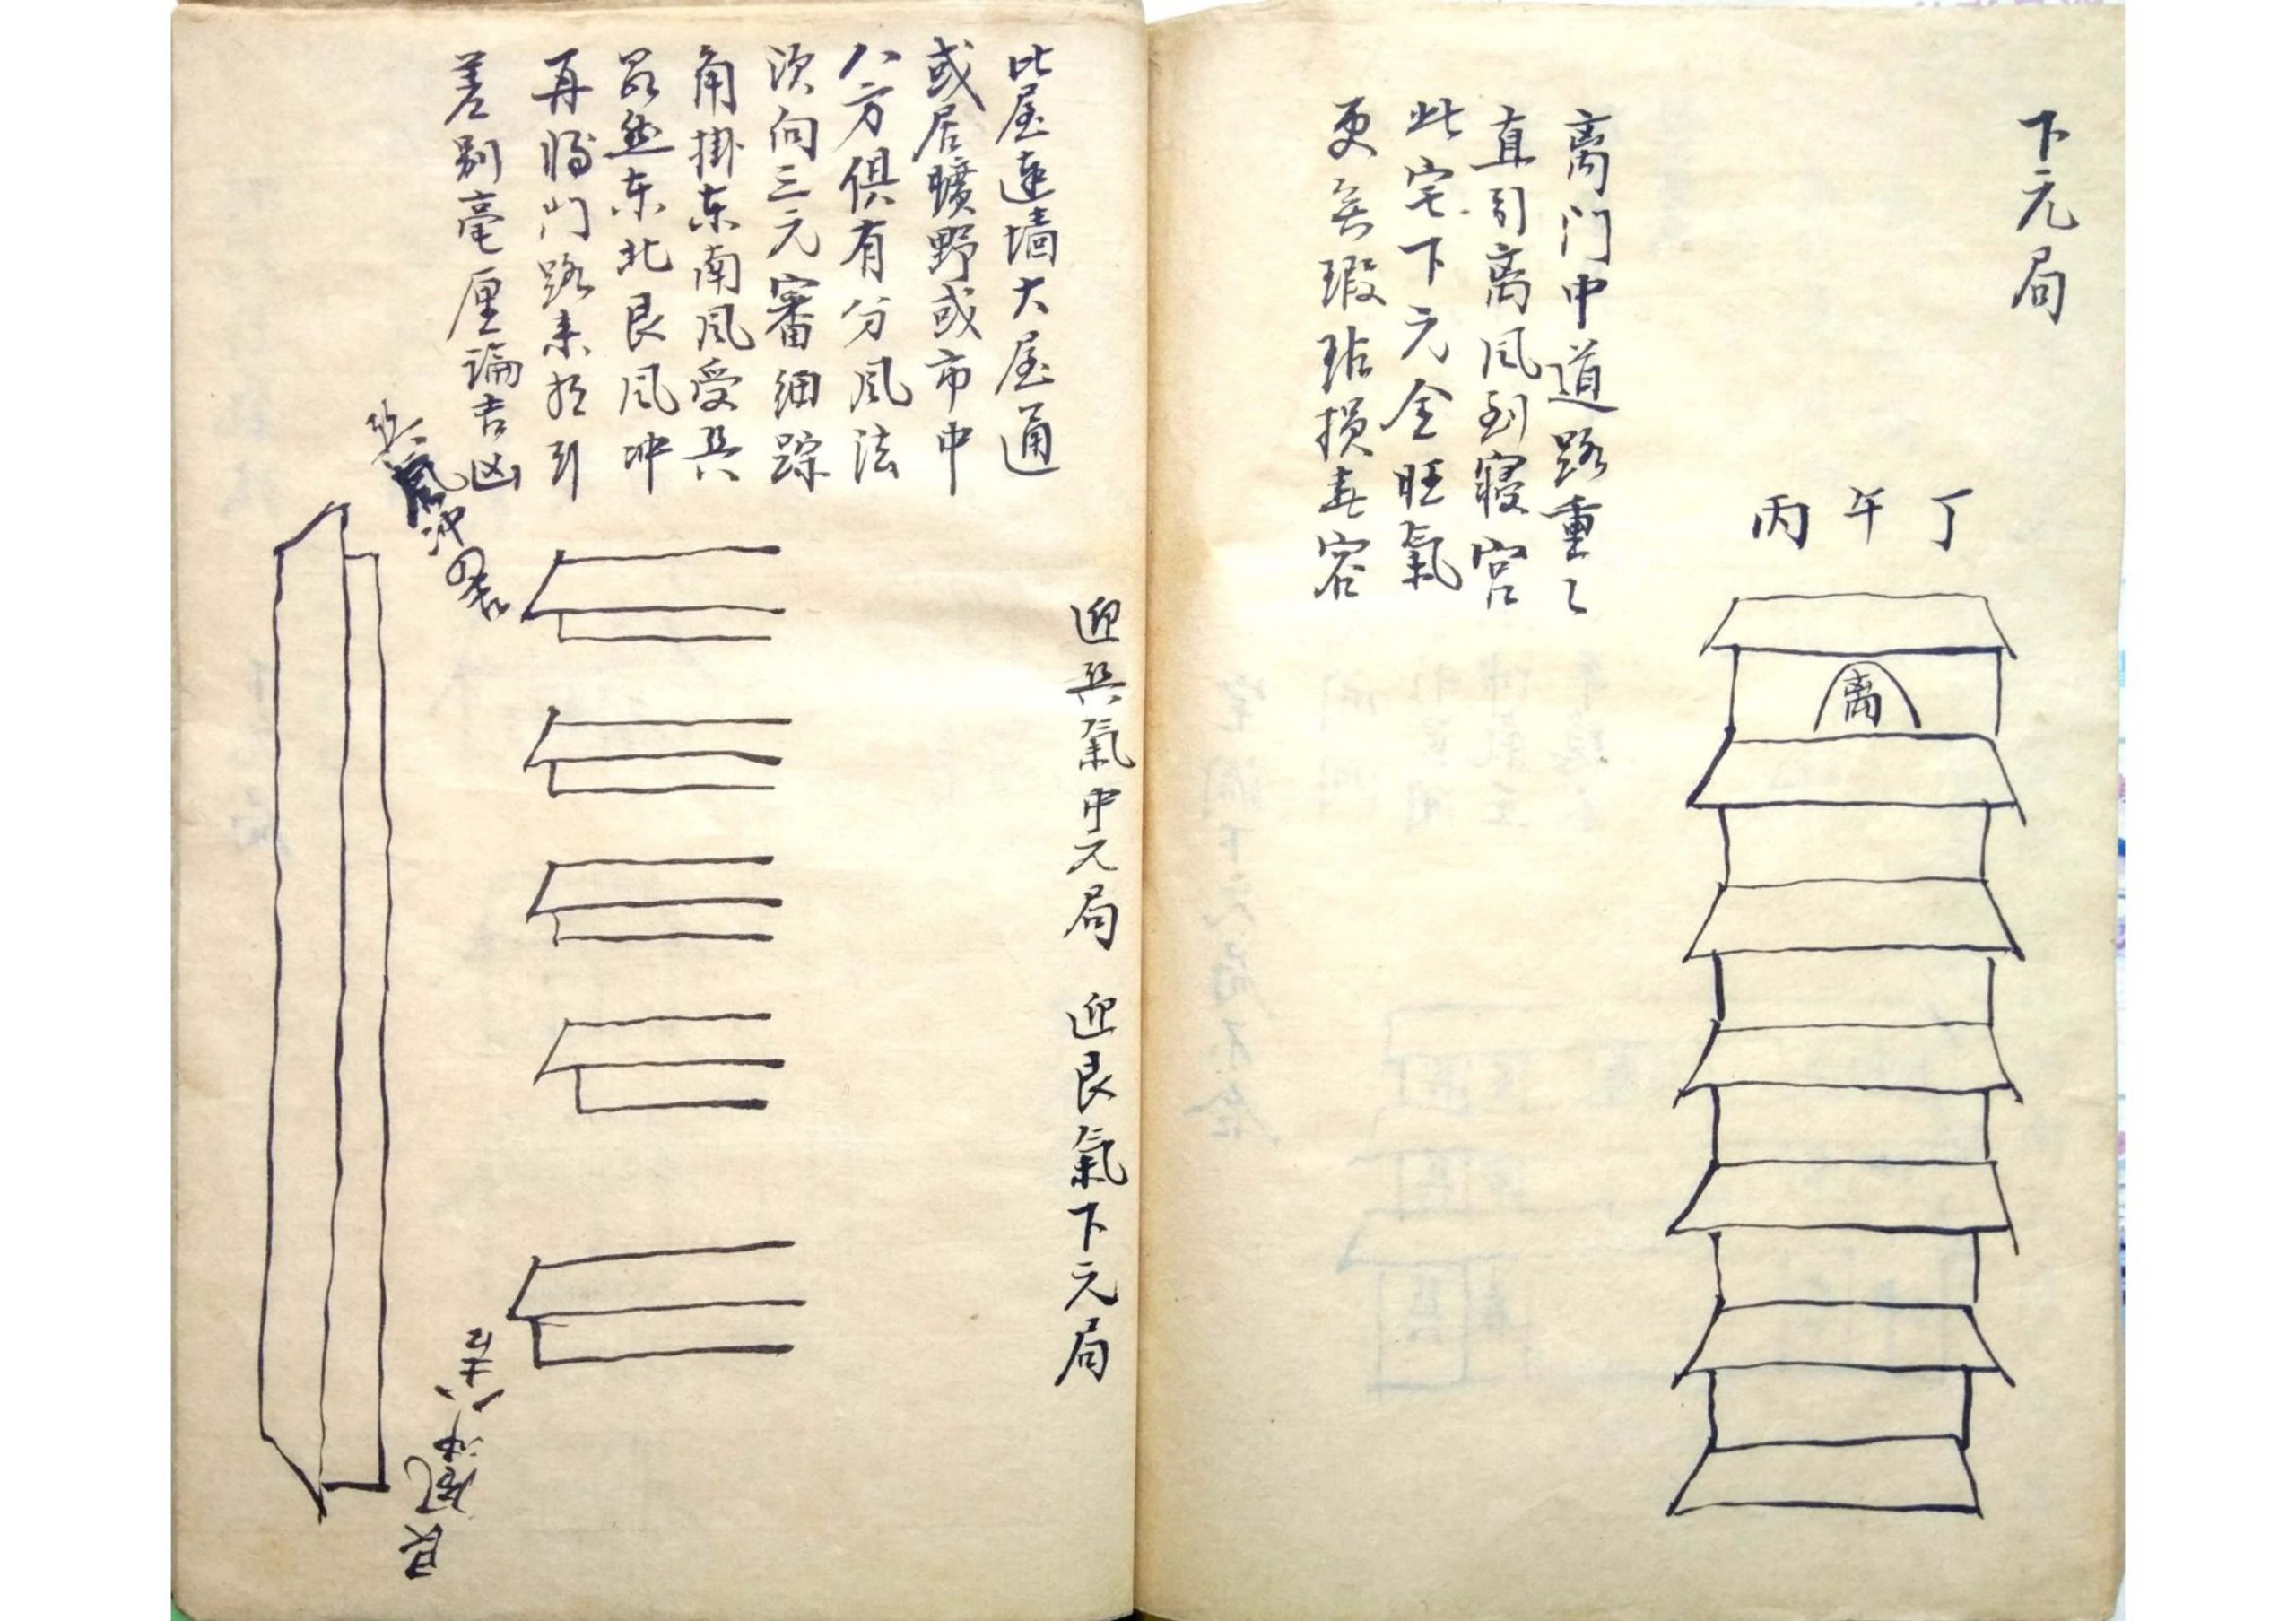 下元局
丙午丁
离
离门中道路重々
直引离风到寝宫
此宅下元全旺氣
更無瑕玷損春容
迎巽氣中元局 迎艮氣下元局
比屋連墙大屋通
或居曠野或市中
八方俱有分风法
次向三元審细踪
角掛东南风受巽
昂然东北艮风冲
再将门路来招引
差别毫厘論吉凶
艮